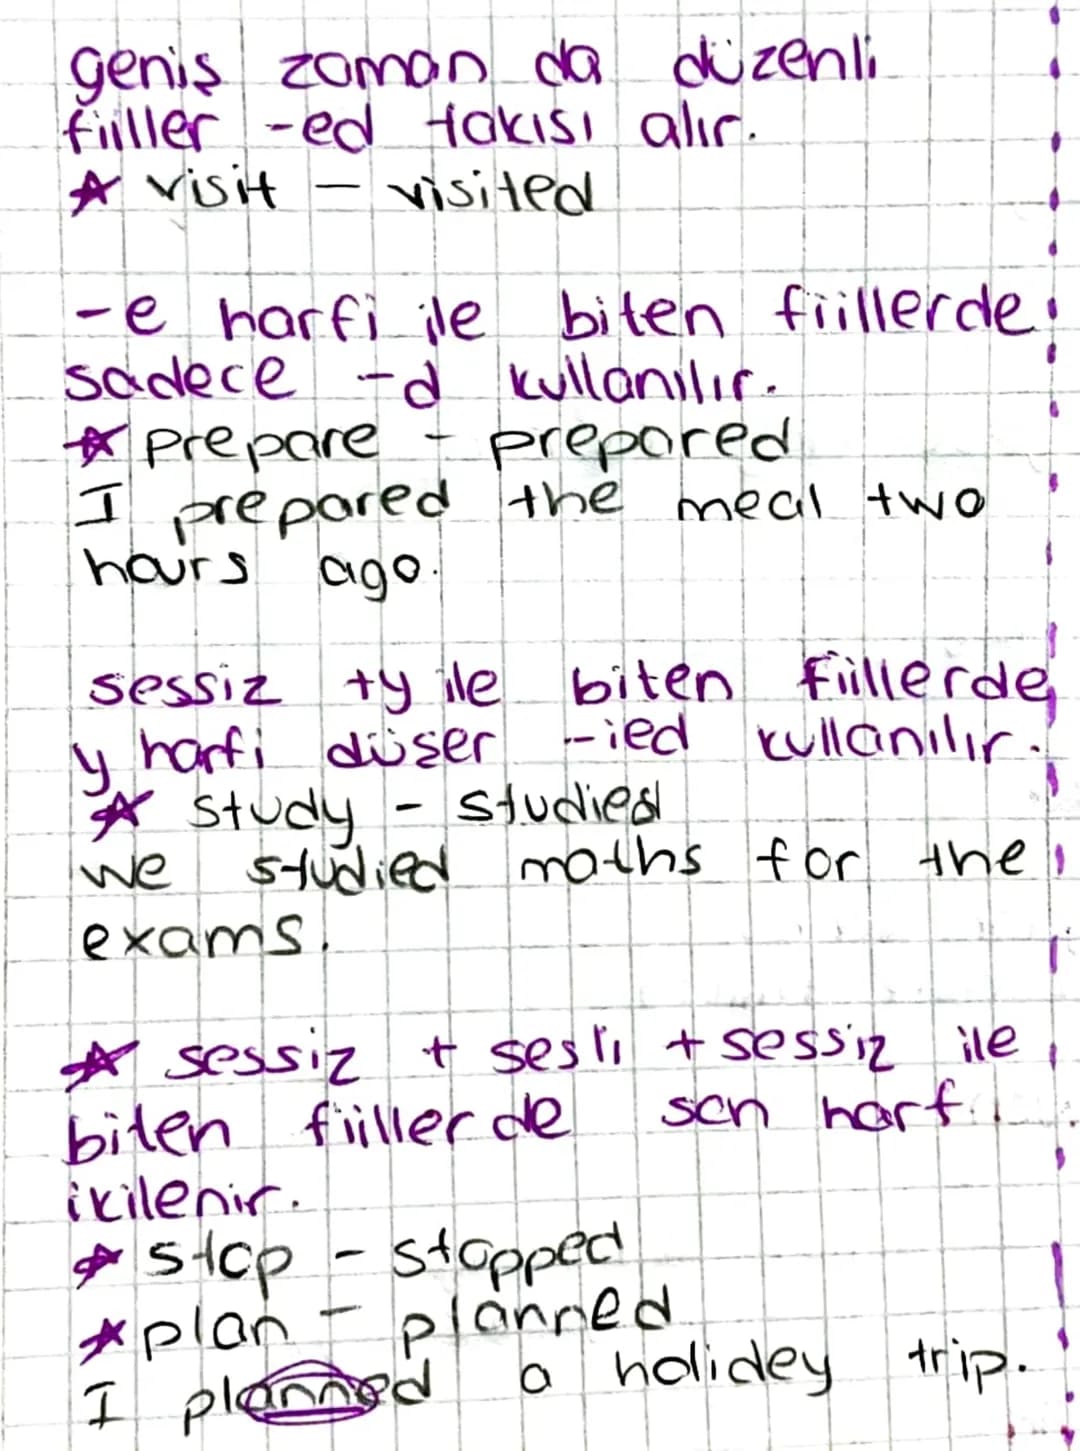 geniş zaman da düzenli
fiiller -ed takısı alır.
☆ visit - visited
-e harfi ile biten fiillerde
sadece -d kullanılır.
☆ prepare - prepared
I prepared the meal two
hours ago.
sessiz +y ile biten fiillerde
y harfi düşer -ied kullanılır.
☆ study - studied
we studied maths for the
exams.
☆ sessiz + sesli + sessiz ile
biten fiillerde son harf
ikilenir.
☆ stop - stopped
☆ plan - planned
I planned a holidey trip.